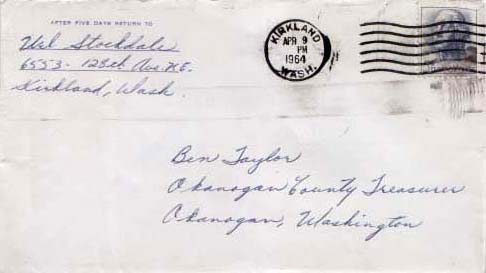 AFTER FIVE DAYS RETURN TO
Stockdale
6553 - 128th Ave. N.E.
Kirkland, Wash.
KIRKLAND
APR 9
PM
1964
WASH.
Ben Taylor
Okanogan County Treasurer
Okanogan, Washington